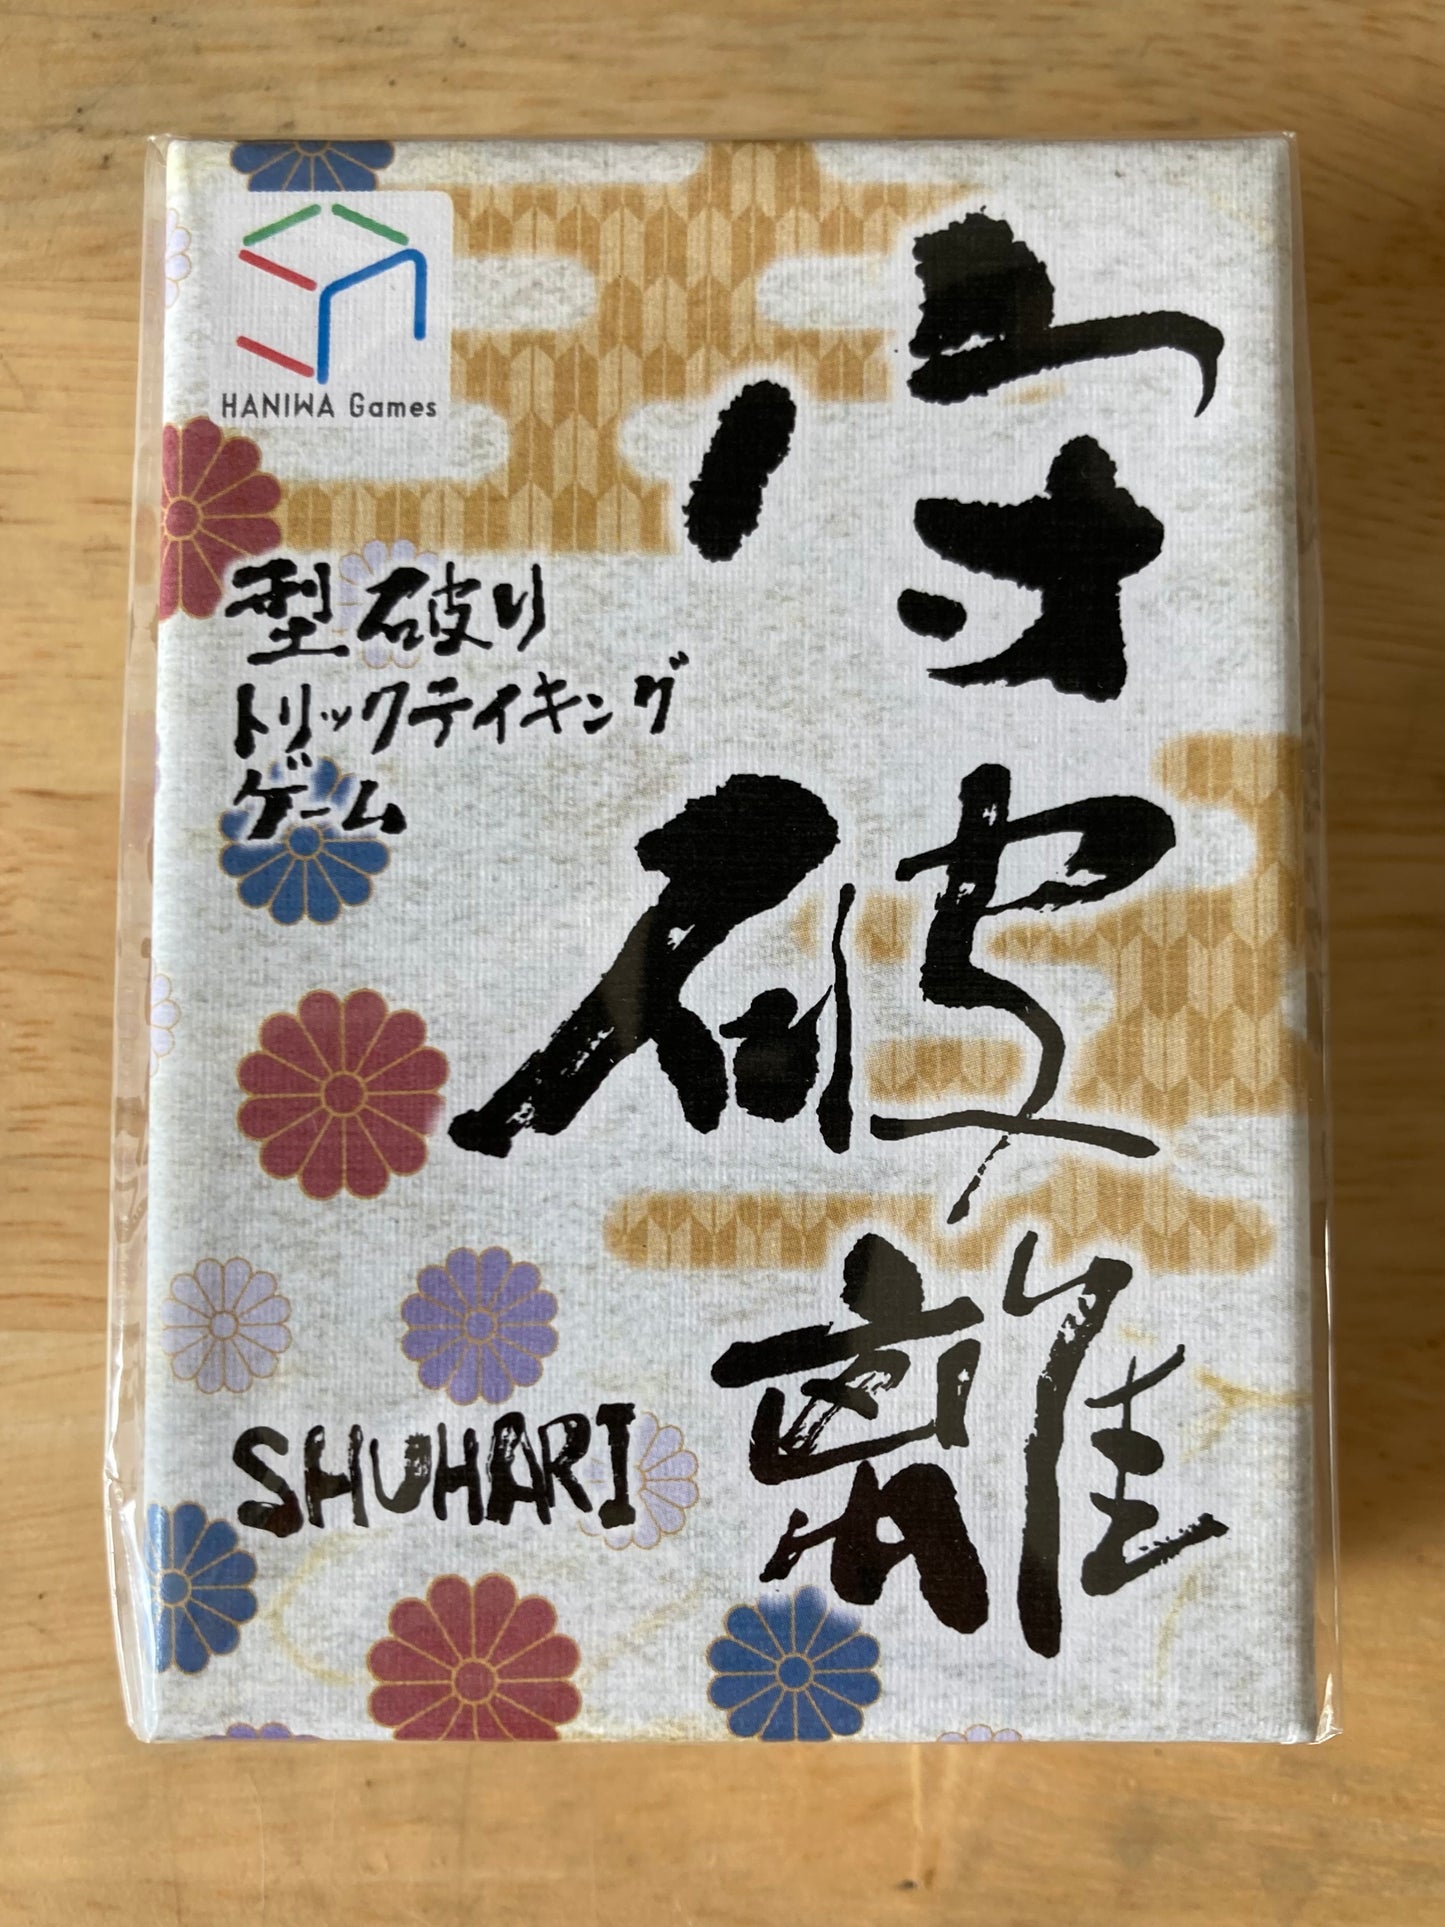 HANIWA Games
守破離
型破り
トリックテイキング
ゲーム
SHUHARI